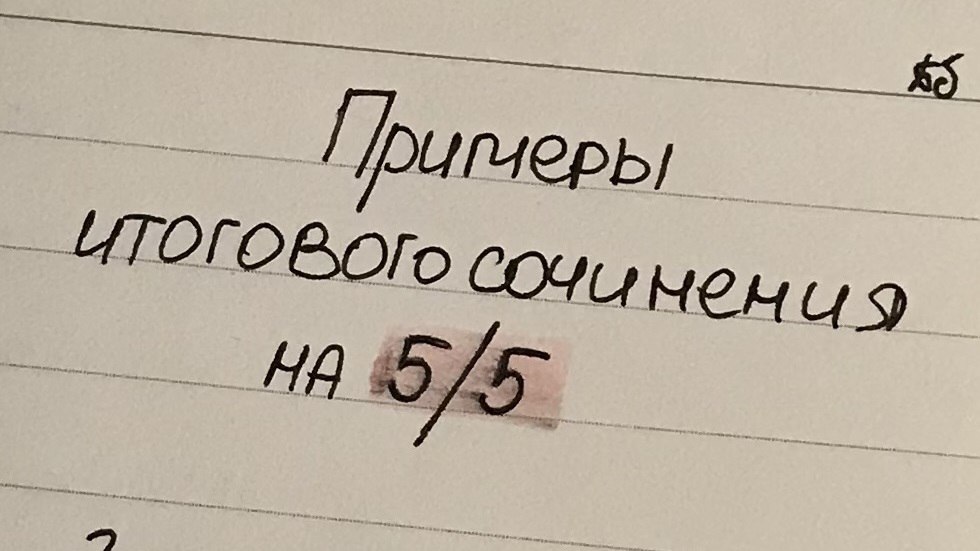 Примеры
итогового сочинения
на 5/5